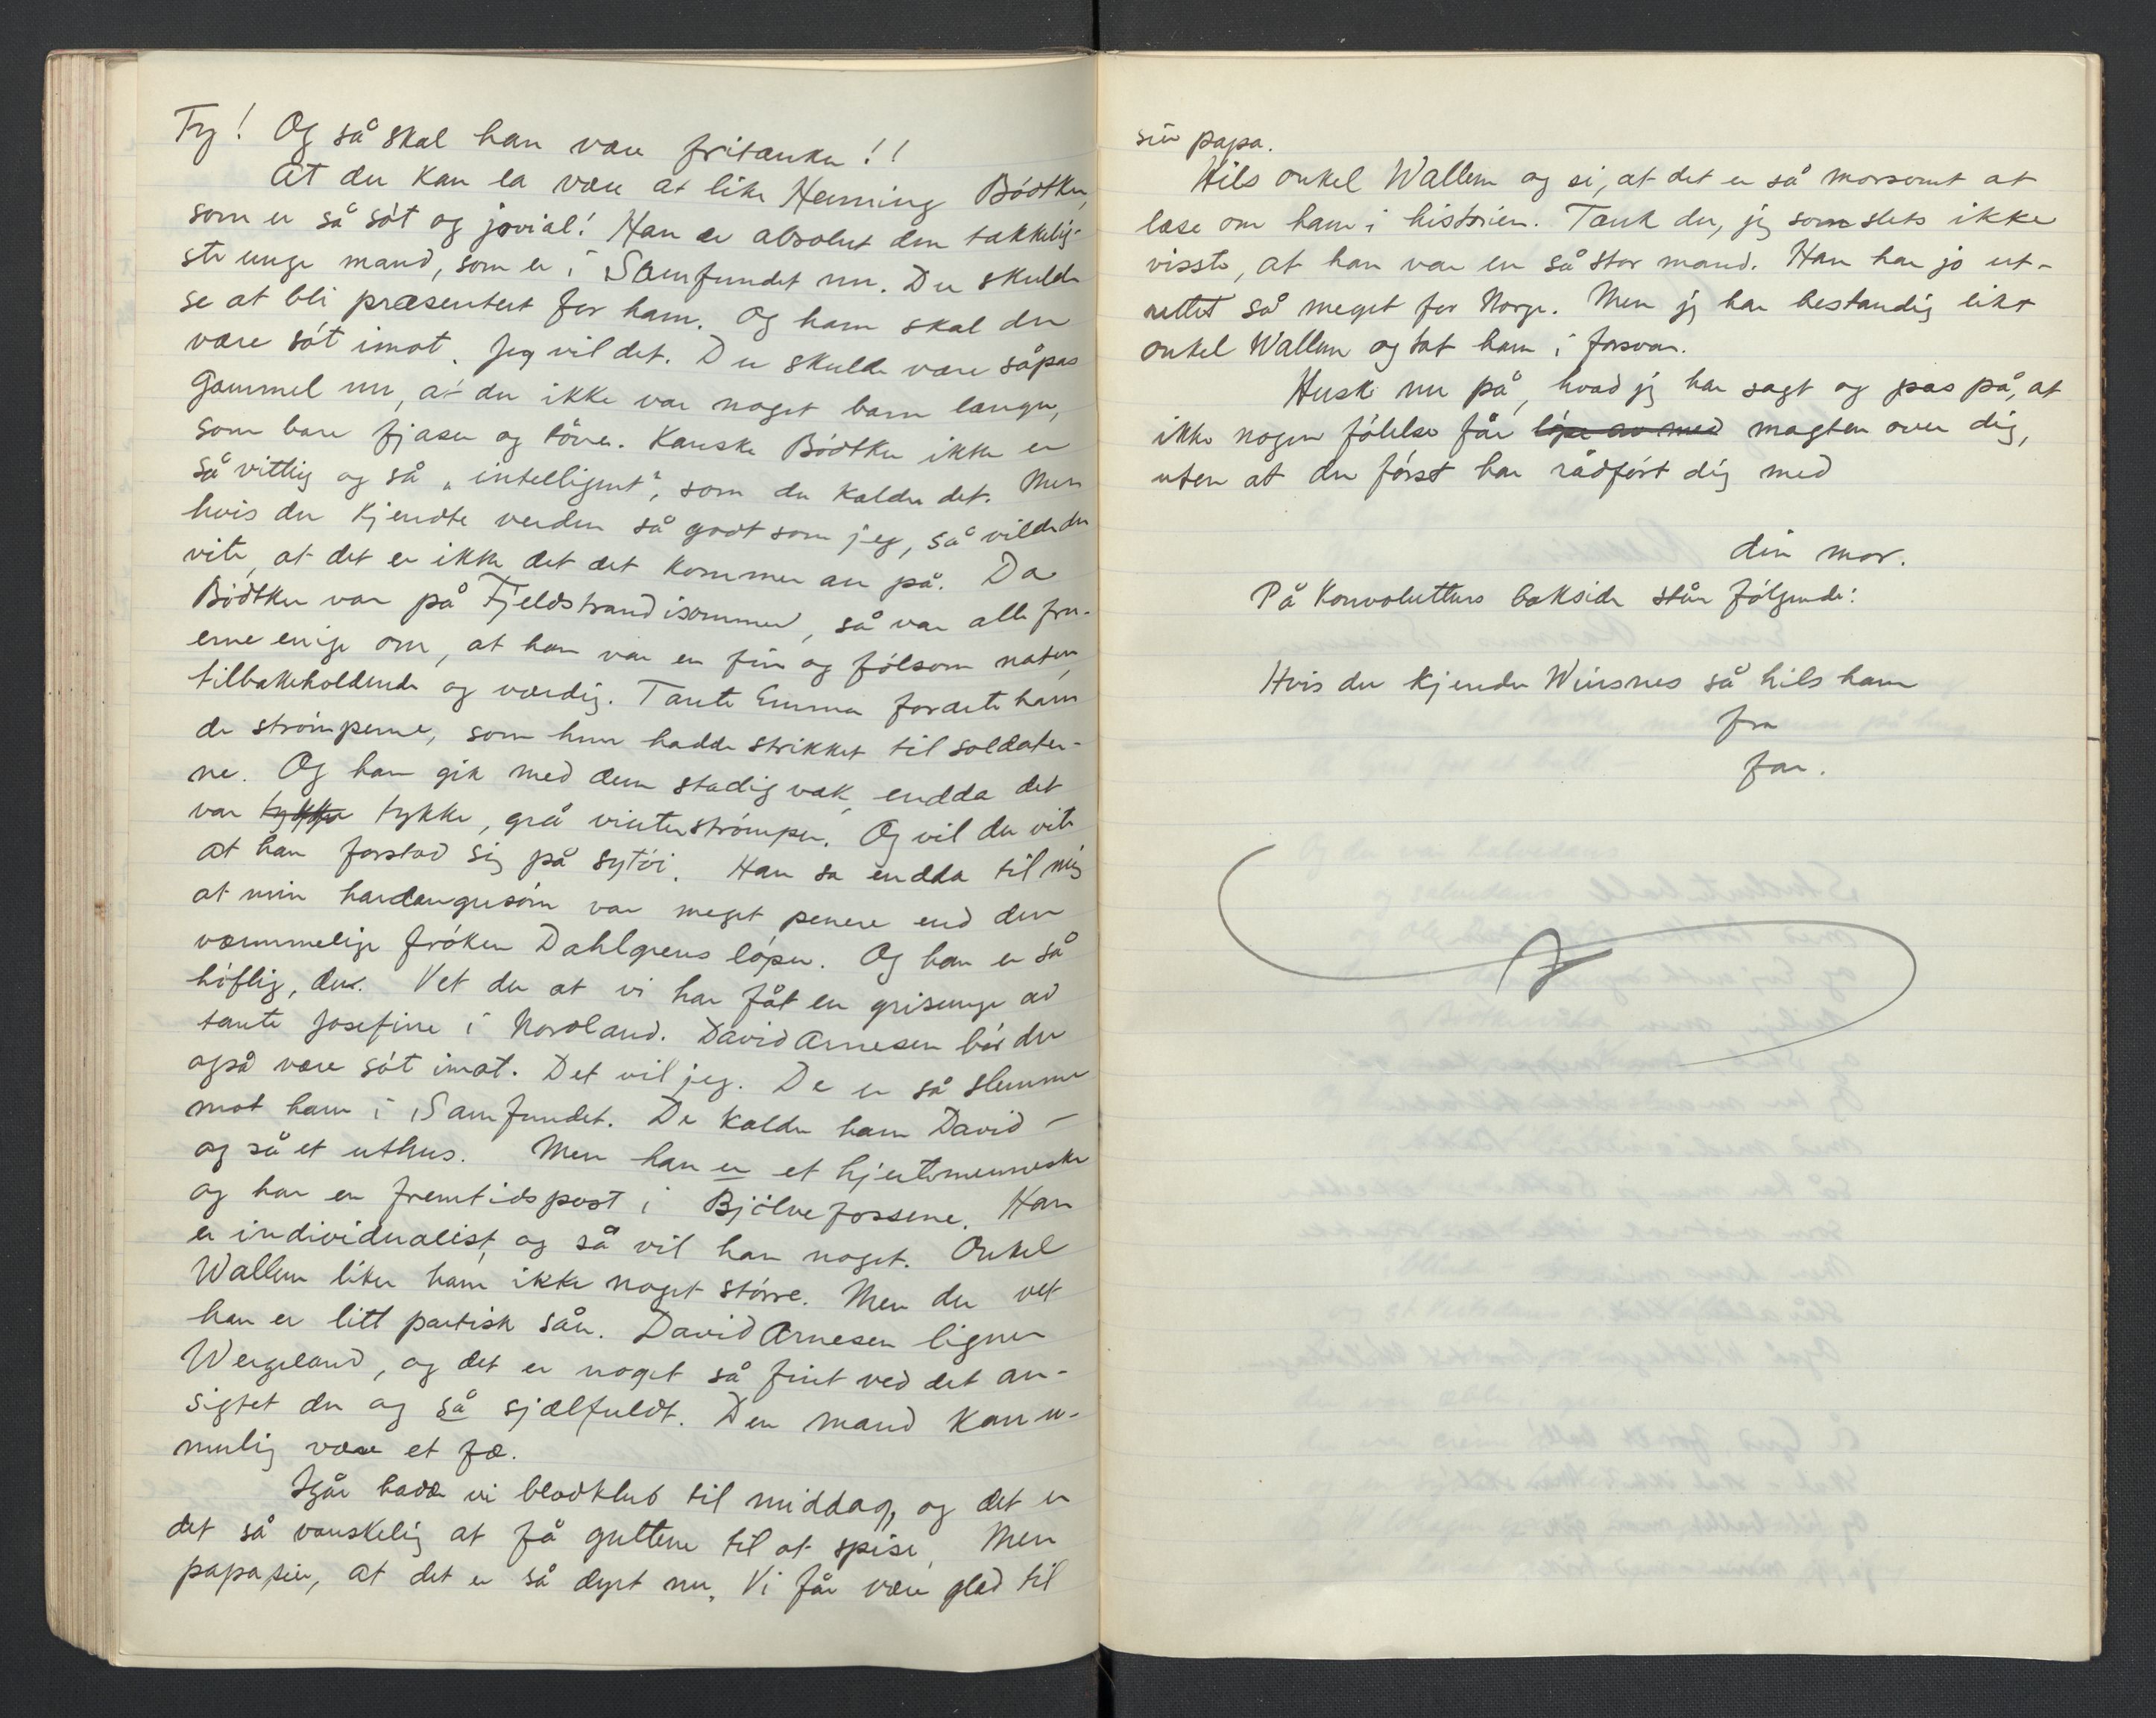 Fy! Og så skal han være fritænker!!
At du kan la være at like Henning Bödtker,
som er så söt og jovial! Han er absolut den takkelig-
ste unge mand, som er i Samfundet nu. Du skulde
se at bli præsentert for ham. Og ham skal du
være söt imot. Jeg vil det. Du skulde være såpas
gammel nu, at du ikke var noget barn længer,
som bare fjaser og töver. Kanske Bödtker ikke er
så vittig og så „intelligent", som du kalder det. Men
hvis du kjendte verden så godt som jeg, så vilde du
vite, at det er ikke det det kommer an på. Da
Bödtker var på Fjeldstrand isommer, så var alle fru-
erne enige om, at han var en fin og fölsom natur,
tilbakeholdende og værdig. Tante Emma forærte ham
de strömperne, som hun hadde strikket til soldater-
ne. Og han gik med dem stadig væk, endda det
var tykke, grå vinterströmper. Og vil du vite
at han forstod sig på sytöi. Han sa endda til mig
at min hardangersöm var meget penere end den
væmmelige fröken Dahlgrens löper. Og han er så
höflig, du. Vet du at vi har fåt en grisunge av
tante Josefine i Nordland. David Arnesen bör du
også være söt imot. Det vil jeg. De er så slemme
mot ham i Samfundet. De kalder ham David –
og så et uthus. Men han er et hjertemenneske
og har en fremtidspost i Bjölvefossene. Han
er individualist og så vil han noget. Onkel
Wallem liker ham ikke noget större. Men du vet
han er litt partisk sån. David Arnesen ligner
Wergeland, og det er noget så fint ved det an-
sigtet du og så sjælfuldt. Den mand kan u-
mulig være et fæ.
Igår hadde vi blodklub til middag, og det er
det så vanskelig at få guttene til at spise. Men
papa sier, at det er så dyrt nu. Vi får være glad til
sier papa.
Hils onkel Wallem og si, at det er så morsomt at
læse om ham i historien. Tænk du, jeg som slets ikke
visste, at han var en så stor mand. Han har jo ut-
rettet så meget for Norge. Men jeg har bestandig likt
onkel Wallem og tat ham i forsvar.
Husk nu på, hvad jeg har sagt og pas på, at
ikke nogen fölelse får löpe av med magten over dig,
uten at du först har rådfört dig med
din mor.
På Konvoluttens bakside står fölgende:
Hvis du kjender Winsnes så hils ham
fra
far.